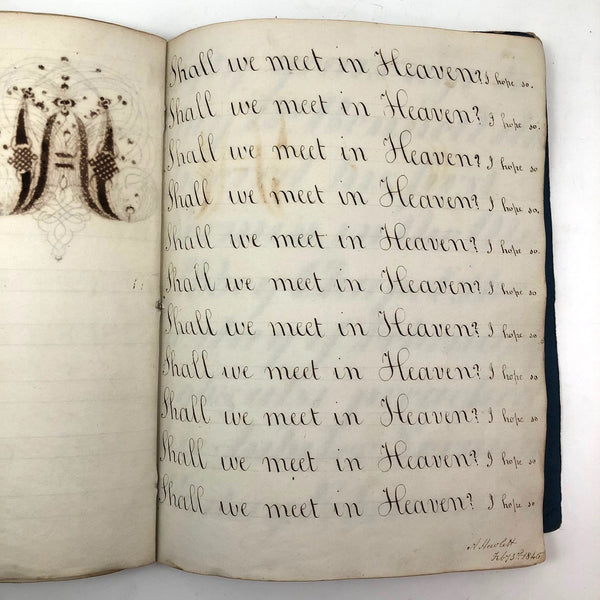 Shall we meet in Heaven? I hope so.
Shall we meet in Heaven? I hope so.
Shall we meet in Heaven? I hope so
Shall we meet in Heaven? I hope so.
Shall we meet in Heaven? I hope so.
Shall we meet in Heaven? I hope so
Shall we meet in Heaven? I hope so
Shall we meet in Heaven? I hope so
Shall we meet in Heaven? I hope so
Shall we meet in Heaven? I hope so
Shall we meet in Heaven? I hope so
Hewlett
Feby 3rd 1846